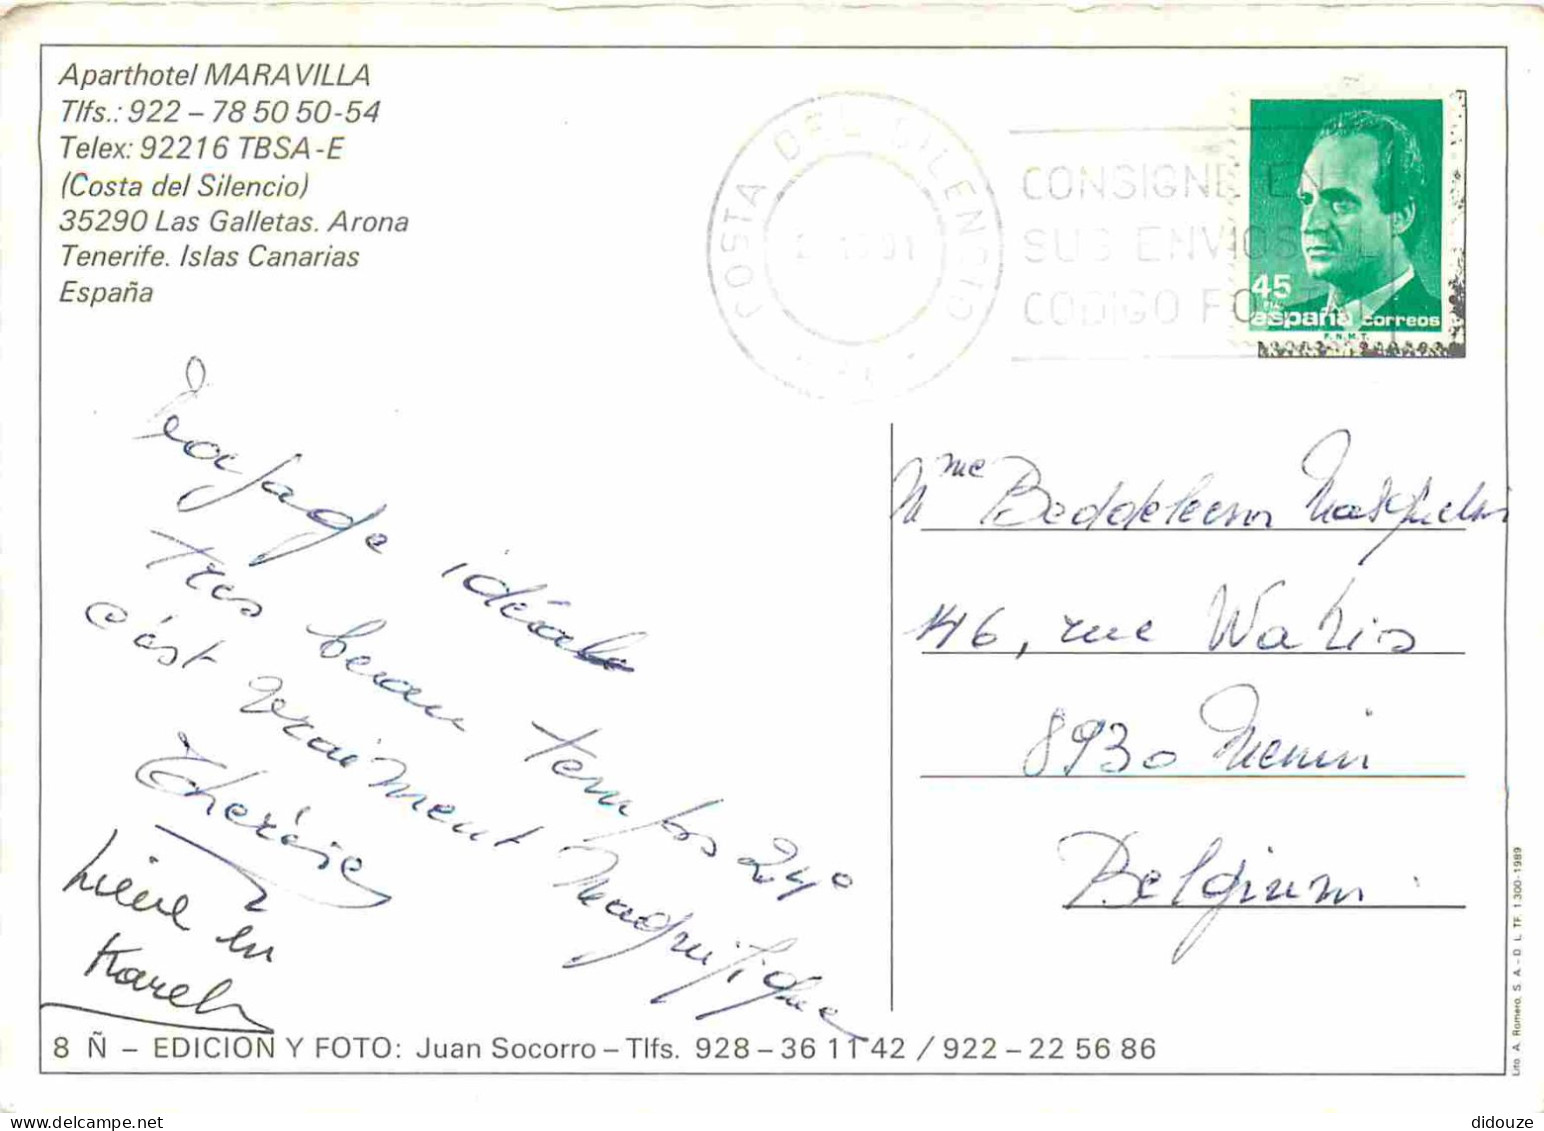 Aparthotel MARAVILLA
Tlfs.: 922 – 78 50 50-54
Telex: 92216 TBSA-E
(Costa del Silencio)
35290 Las Galletas. Arona
Tenerife. Islas Canarias
España
COSTA DEL SILENCIO
CONSIGNE EN
SUS ENVIOS EL
CODIGO POSTAL
45
PTA
españa correos
F.N.M.T.
idéale
très beau temps 24°
c'est vraiment magnifique
Thérèse
Lieve en
Karel
Mme
146, rue
8930 Menin
Belgium
8 Ñ – EDICION Y FOTO: Juan Socorro – Tlfs. 928 – 36 11 42 / 922 – 22 56 86
Lito. A. Romero, S. A. - D. L. TF. 1.300-1989
didouze